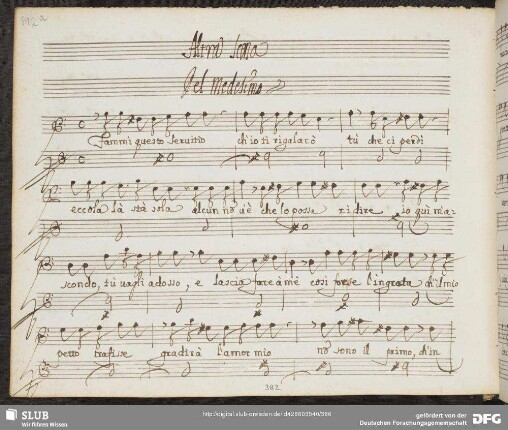 192a
Del medesimo
Fammi questo seruitio ch'io ti regalarò tù che ci perdi
eccola là stà sola alcun nō u'è che lo possa ridire io quì m'a-
scondo, tù uagli adosso, e lascia fare à me così forse l'ingrata ch'il mio
petto trafisse gradirà l'amor mio nō sono il primo, ch'in
382
SLUB
Wir führen Wissen.
http://digital.slub-dresden.de/id426603540/386
gefördert von der
Deutschen Forschungsgemeinschaft
DFG